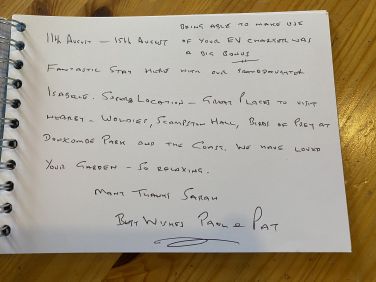 BEING ABLE TO MAKE USE
11th AUGUST – 15th AUGUST OF YOUR EV CHARGER WAS
A BIG BONUS
FANTASTIC STAY HERE WITH OUR GRANDDAUGHTER
ISABELLE. SUPERB LOCATION – GREAT PLACES TO VISIT
NEARBY – WOLDIES, SCAMPSTON HALL, BIRDS OF PREY AT
DUNCOMBE PARK AND THE COAST. WE HAVE LOVED
YOUR GARDEN – SO RELAXING.
MANY THANKS SARAH
BEST WISHES PAUL & PAT